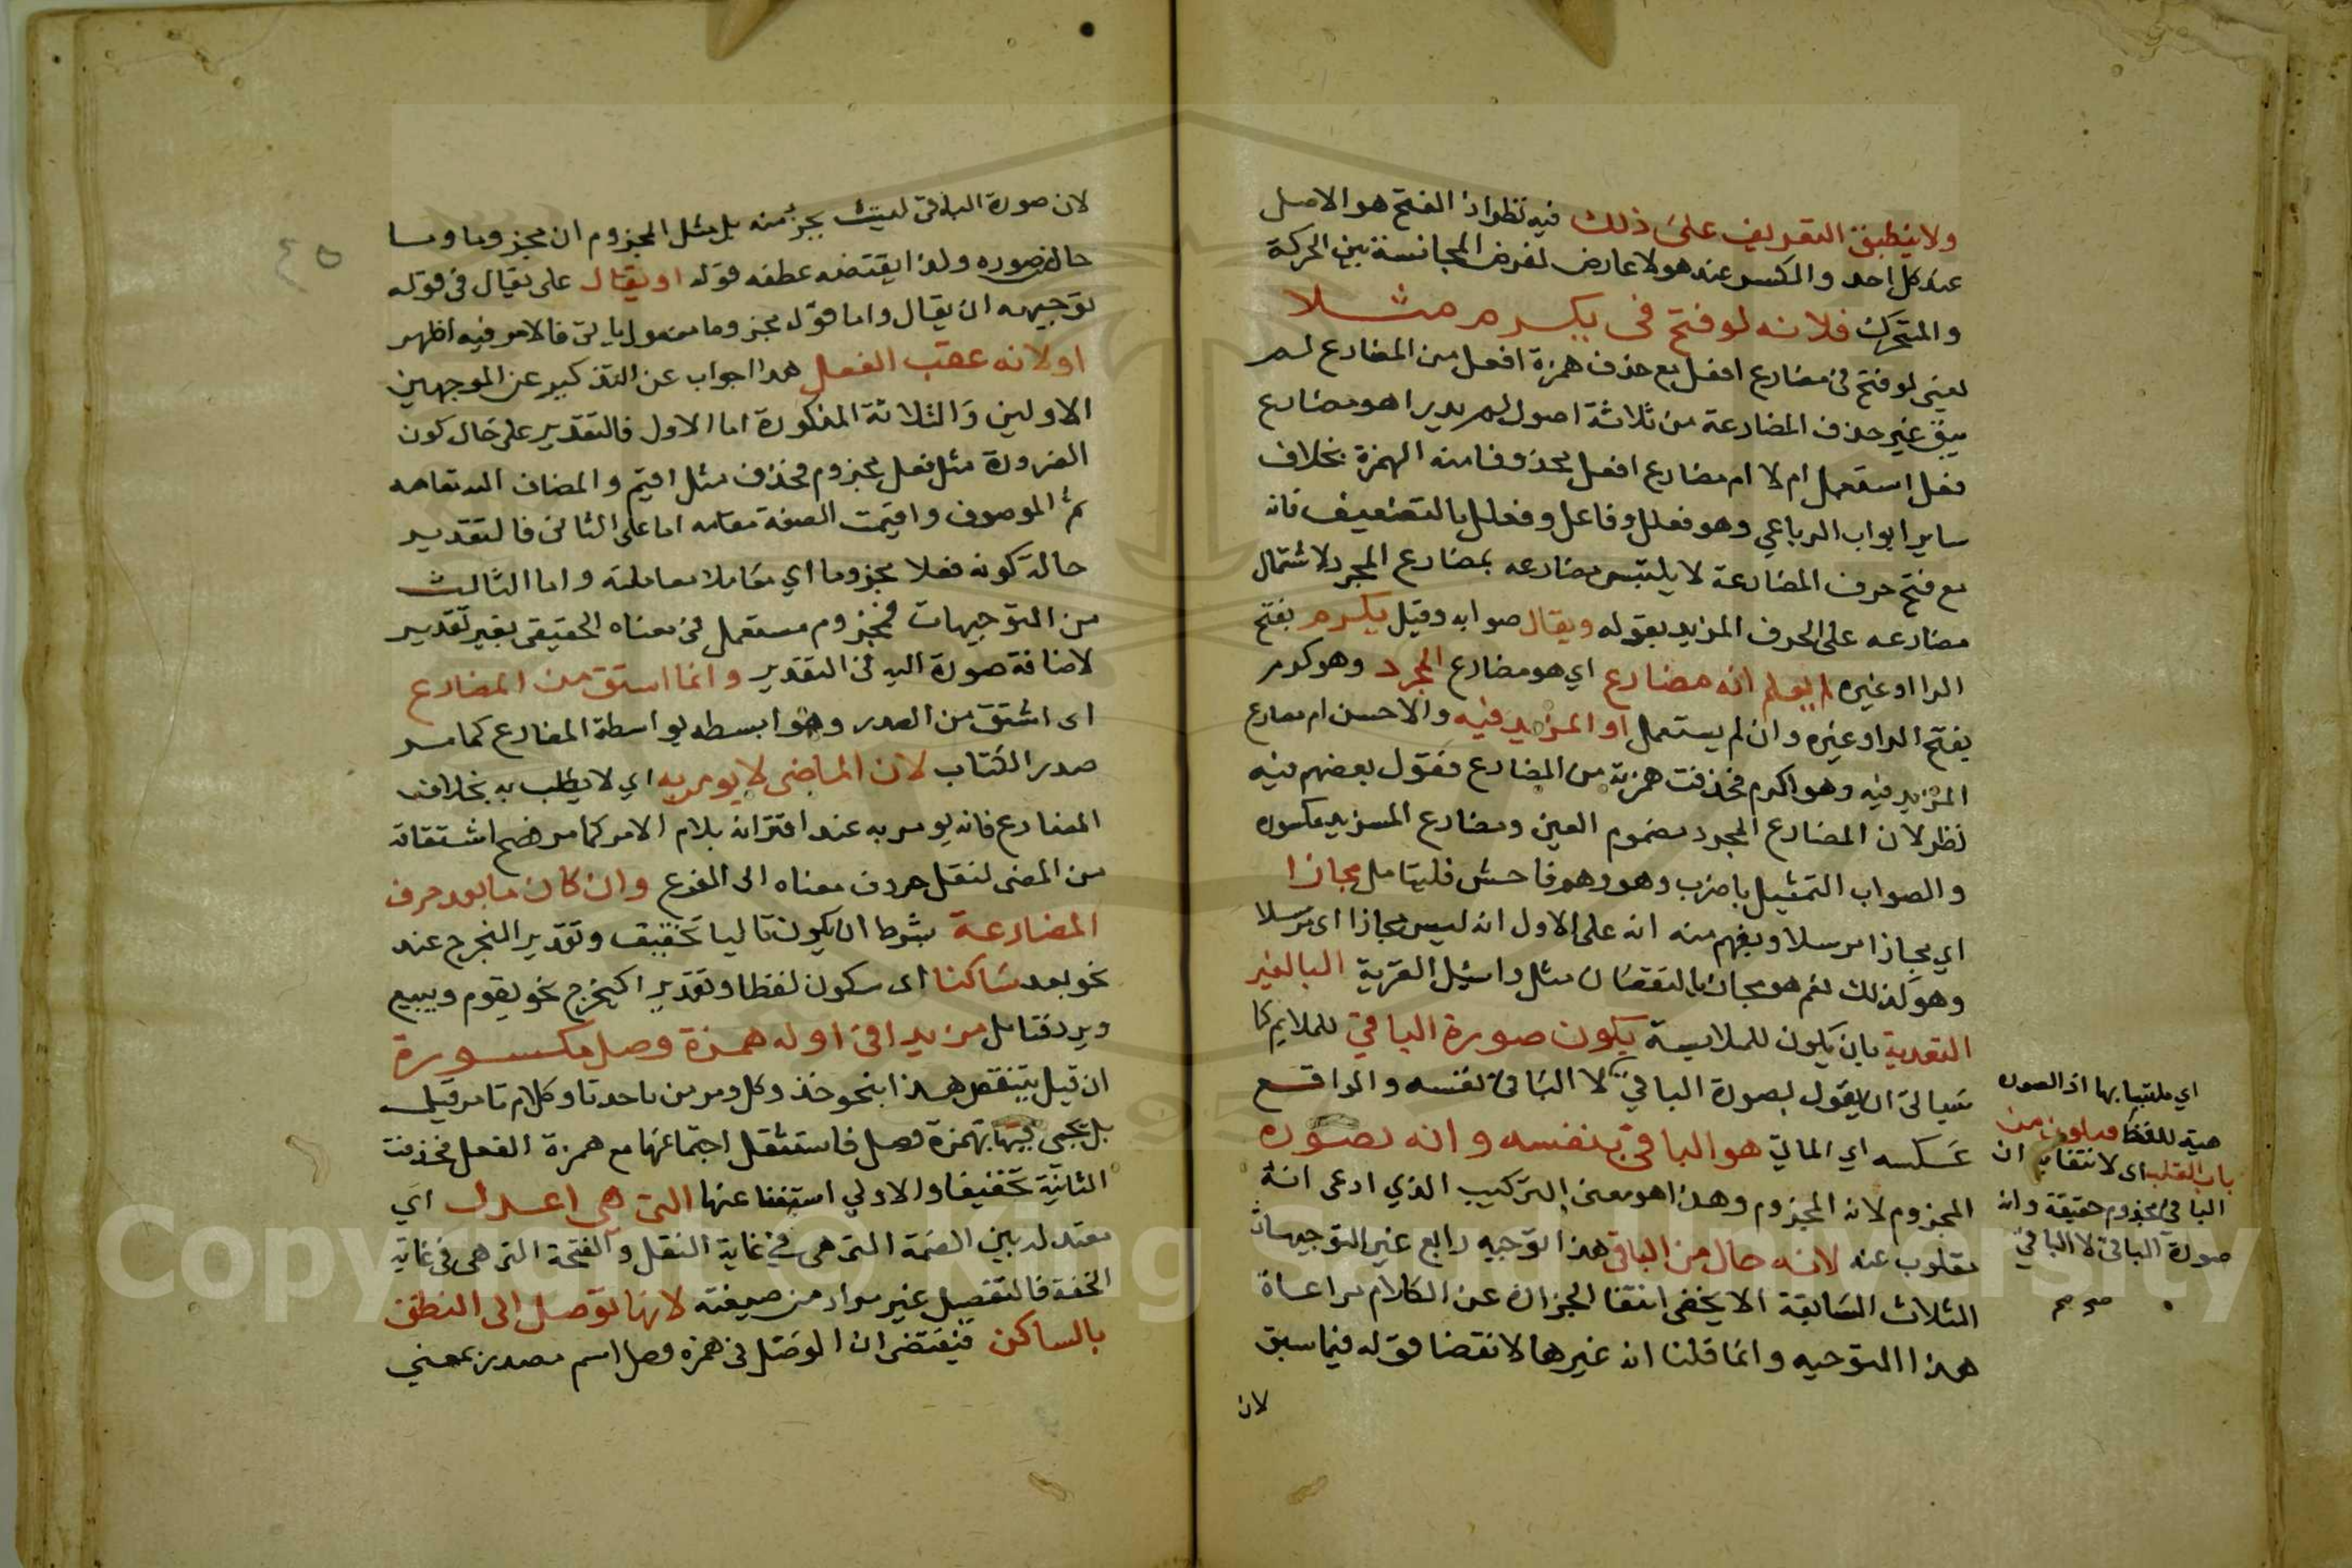 ولا ينطبق التعريف على ذلك فيه نظر اذ الفتح هو الاصل
عند كل احد والكسر عند هولا عارض لفرض المجانسة بين الحركة
والمتحرك فلانه لو فتح فى يكرم مثلا
يعنى لو فتح فى مضارع افعل مع حذف همزة افعل من المضارع لم
يبق غير حذف المضارعة من ثلاثة اصول لم يدر اهو مضارع
فعل استعمل ام لا ام مضارع افعل محذوفا منه الهمزة بخلاف
ساير ابواب الرباعي وهو فعلل وفاعل وفعل بالتضعيف فانه
مع فتح حرف المضارعة لا يلتبس مضارعه بمضارع المجرد لاشتمال
مضارعه على الحرف المزيد بقوله ويقال صوابه وقيل يكرم بفتح
الرا او غيره لم يعلم انه مضارع اي هو مضارع المجرد وهو كرم
بفتح الرا وغيره وان لم يستعمل او المزيد فيه والاحسن ام مضارع
المزيد فيه وهو اكرم فحذفت همزته من المضارع فقول بعضهم فيه
نظر لان المضارع المجرد مضموم العين ومضارع المزيد مكسوره
والصواب التمثيل باضرب وهو وهم فاحش فليتامل مجازا
اي مجازا مرسلا ويفهم منه انه على الاول انه ليس مجازا اى مرسلا
وهو كذلك نعم هو مجاز بالنقصان مثل واسئل القرية البا لغير
التعدية بان يكون للملابسة يكون صورة الباقي للملايم كما
سياتى ان يقول بصورة الباقي لا الباقى نفسه والواقع
عكسه اي الماتي هو الباقى بنفسه وانه بصورة
المجزوم لانه المجزوم وهذا هو معنى التركيب الذي ادعى انه
مقلوب عنه لانه حال من الباقى هذا توجيه رابع غير التوجيهات
الثلاث السابقة الا يخفى انتفا الجزان عن الكلام مراعاة
هذا التوجيه وانما قلنا انه غيرها لانقضا قوله فيما سبق
لان
اي ملتبسا بها اذ الصوره
هية للفظ فيكون من
باب القلب اى لانتفايه ان
الباقى مجزوم حقيقة وانه
صورة الباقى لا الباقي
صح صح
لان صورة الباقى ليست بجزء منه بل مثل المجزوم ان مجزوما وما
حال صوره ولذا يقتضه عطفه قوله او يقال على يقال فى قوله
توجيهه ان يقال واما قوله مجزوما معمول ياتى فالامر فيه اظهر
او لانه عقب الفعل هذا جواب عن التذكير عن الموجهين
الاولين والثلاثة المذكورة اما الاول فالتقدير على حال كون
الضرورة مثل فعل مجزوم فحذف مثل اقيم والمضاف اليه مقامه
ثم الموصوف واقيمت الصفة مقامه اما على الثانى فالتقدير
حالة كونه فعلا مجزوما اي معاملا معاملته واما الثالث
من التوجيهات فمجزوم مستعمل فى معناه الحقيقى بغير تقدير
لاضافة صورة اليه فى التقدير وانما استق من المضارع
اى اشتق من المصدر وهو ابسطه بواسطة المضارع كما مر
صدر الكتاب لان الماضى لا يومر به اي لا يطلب به بخلاف
المضارع فانه يومر به عند اقترانه بلام الامر كما مر فصح اشتقاقه
من المضى لنقل حروف معناه الى الفرع وان كان ما بعد حرف
المضارعة بشرط ان يكون تاليا تحقيق وتقدير المخرج عند
نحو يعد ساكنا اى سكون لفظا وتقديرا كيخرج نحو يقوم ويبيع
ويرد فتامل مزيدا فى اوله همزة وصل مكسورة
ان قيل ينتقض هذا بنحو خذ وكل ومر من ناحدتا وكلام تامر قيل
بل يجى فيها بهمزة وصل فاستثقل اجتماعها مع همزة الفعل فحذفت
الثانية تخفيفا والاولي استغنا عنها التى هي اعدل اي
معتدلة بين الضمة التى هى في غاية الثقل والفتحة التى هى فى غاية
الخفة فالتفصيل غير مراد من صيغته لانها توصل الى النطق
بالساكن فيقتضى ان الوصل فى همزه وصل اسم مصدر بمعنى
Copyright © King Saud University